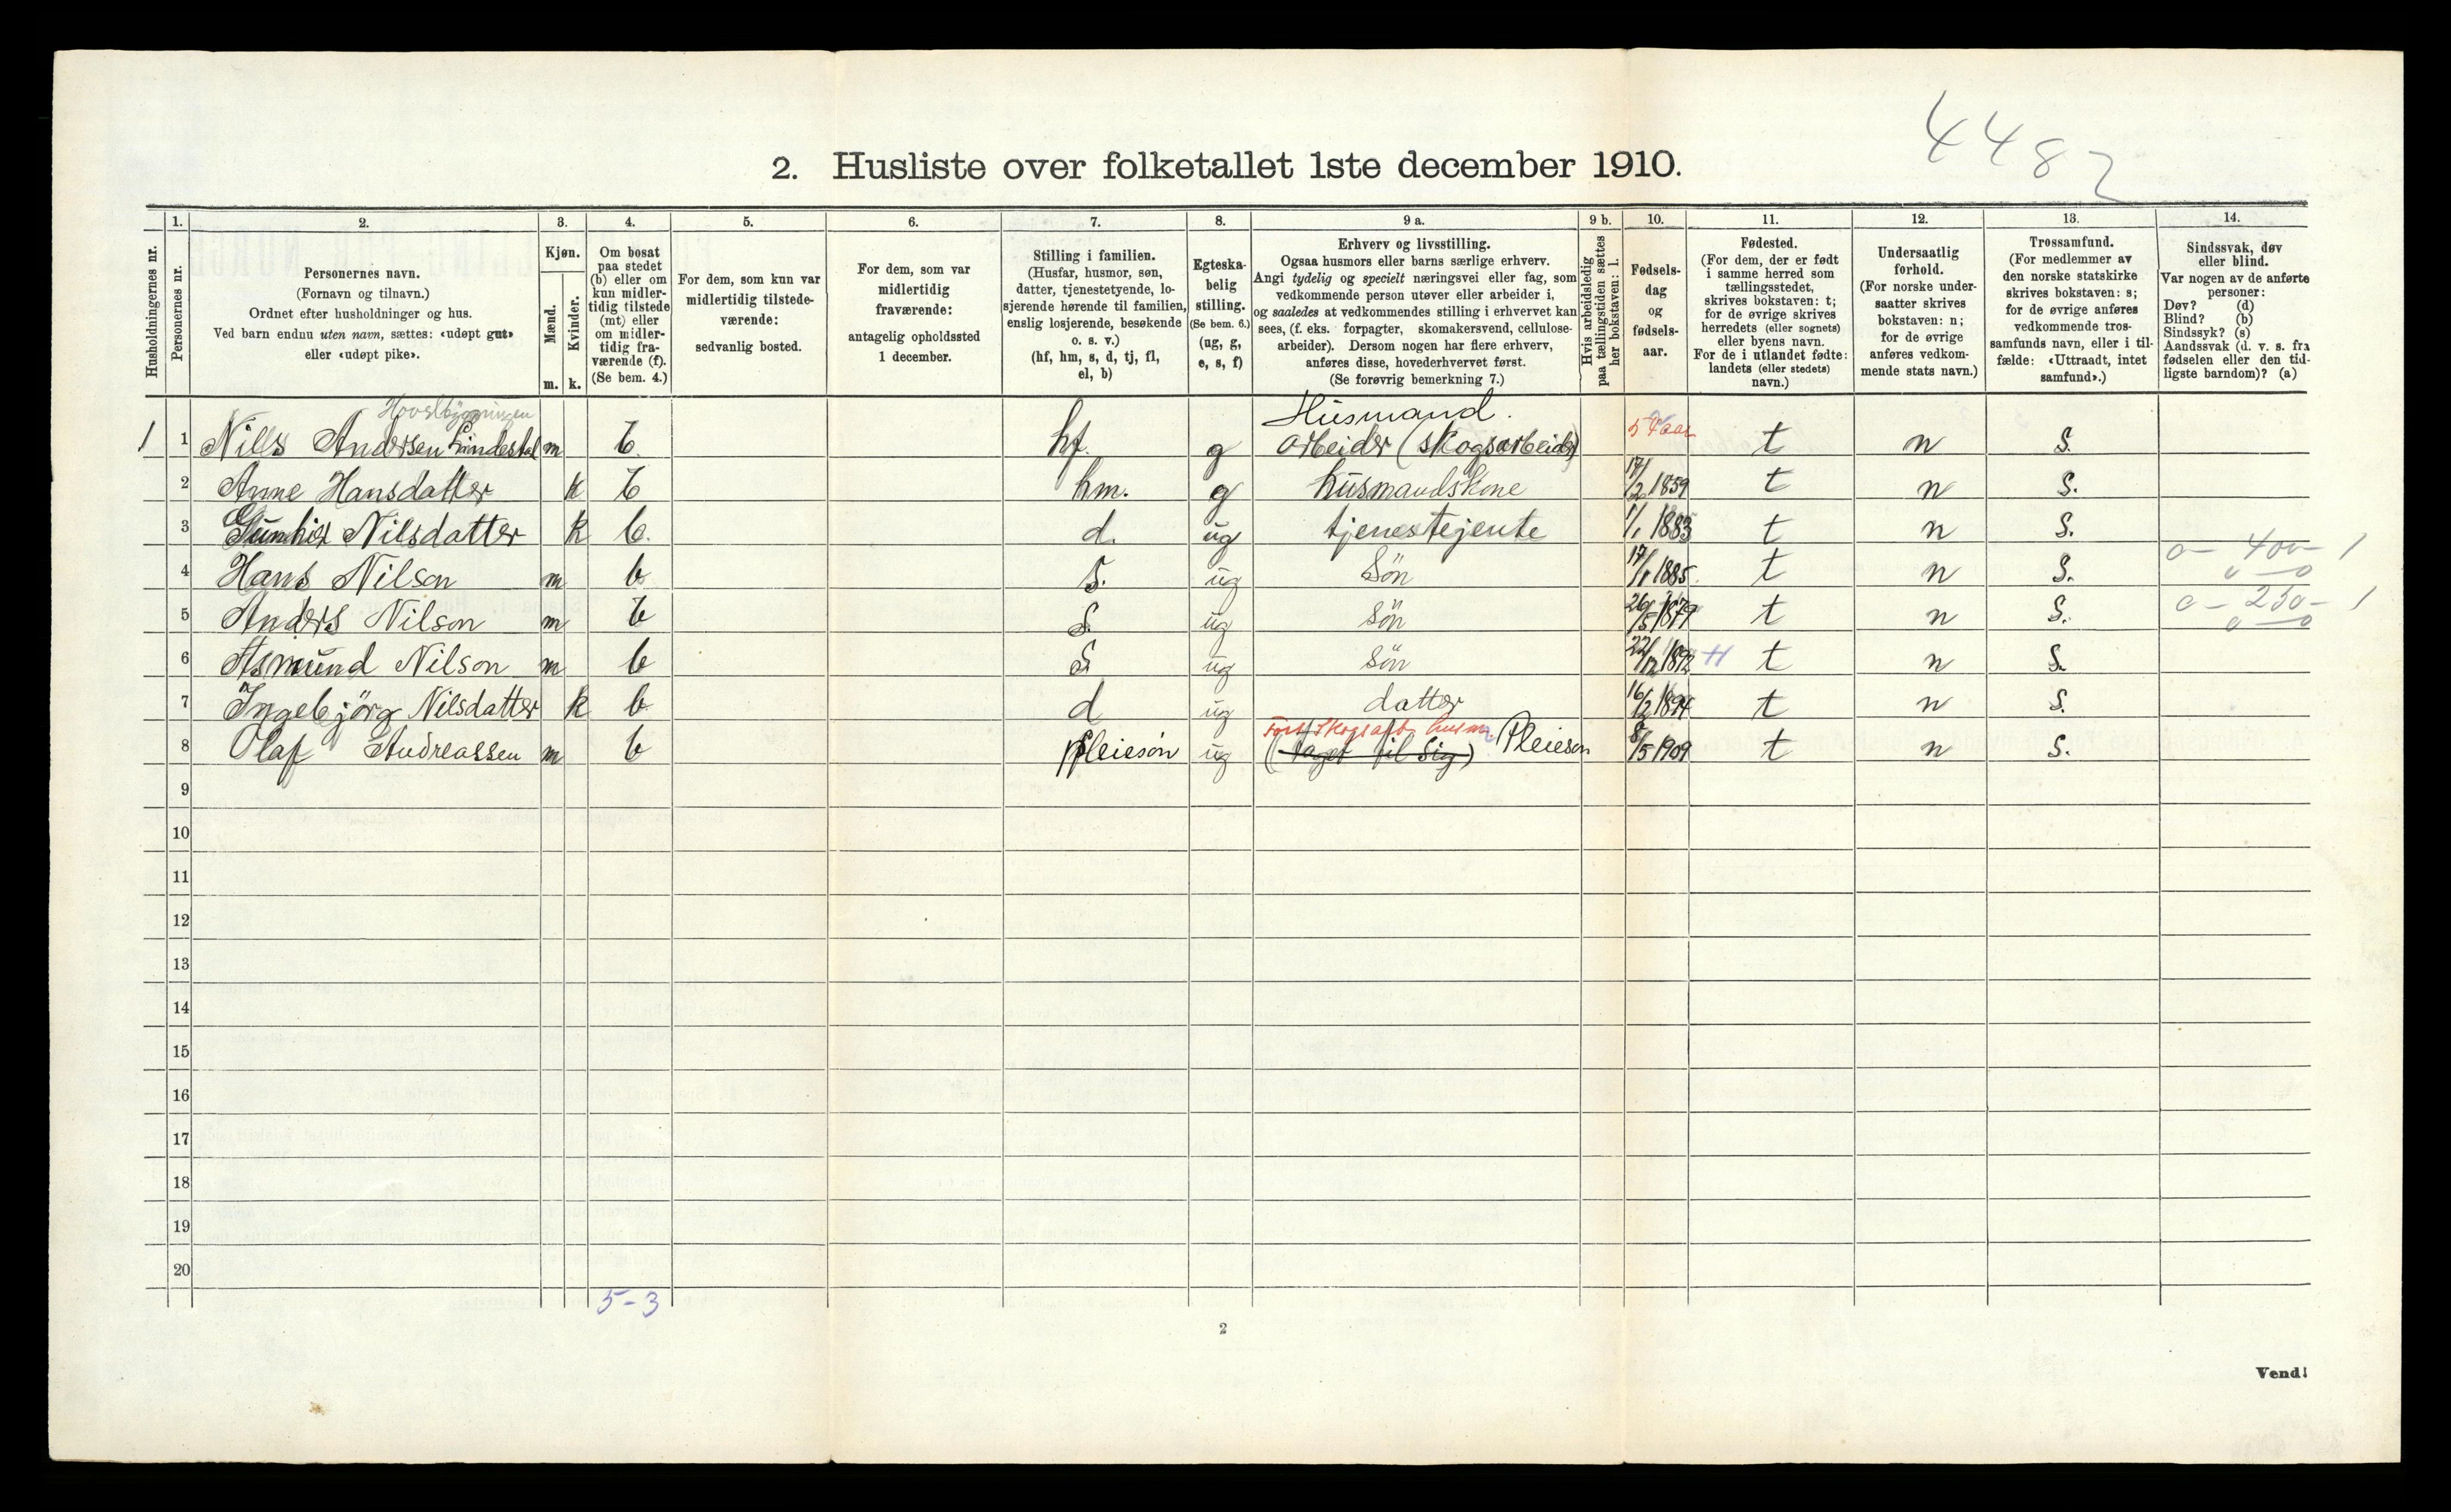 4482
2. Husliste over folketallet 1ste december 1910.
Husholdningernes nr.
1.
Personernes nr.
2.
Personernes navn.
(Fornavn og tilnavn.)
Ordnet efter husholdninger og hus.
Ved barn endnu uten navn, sættes: «udøpt gut»
eller «udøpt pike».
3.
Kjøn.
Mænd.
Kvinder.
m. k.
4.
Om bosat
paa stedet
(b) eller om
kun midler-
tidig tilstede
(mt) eller
om midler-
tidig fra-
værende (f).
(Se bem. 4.)
5.
For dem, som kun var
midlertidig tilstede-
værende:
sedvanlig bosted.
6.
For dem, som var
midlertidig
fraværende:
antagelig opholdssted
1 december.
7.
Stilling i familien.
(Husfar, husmor, søn,
datter, tjenestetyende, lo-
sjerende hørende til familien,
enslig losjerende, besøkende
o. s. v.)
(hf, hm, s, d, tj, fl,
el, b)
8.
Egteska-
belig
stilling.
(Se bem. 6.)
(ug, g,
e, s, f)
9 a.
Erhverv og livsstilling.
Ogsaa husmors eller barns særlige erhverv.
Angi tydelig og specielt næringsvei eller fag, som
vedkommende person utøver eller arbeider i,
og saaledes at vedkommendes stilling i erhvervet kan
sees, (f. eks. forpagter, skomakersvend, cellulose-
arbeider). Dersom nogen har flere erhverv,
anføres disse, hovederhvervet først.
(Se forøvrig bemerkning 7.)
9 b.
Hvis arbeidsledig
paa tællingstiden sættes
her bokstaven: l.
10.
Fødsels-
dag
og
fødsels-
aar.
11.
Fødested.
(For dem, der er født
i samme herred som
tællingsstedet,
skrives bokstaven: t;
for de øvrige skrives
herredets (eller sognets)
eller byens navn.
For de i utlandet fødte:
landets (eller stedets)
navn.)
12.
Undersaatlig
forhold.
(For norske under-
saatter skrives
bokstaven: n;
for de øvrige
anføres vedkom-
mende stats navn.)
13.
Trossamfund.
(For medlemmer av
den norske statskirke
skrives bokstaven: s;
for de øvrige anføres
vedkommende tros-
samfunds navn, eller i til-
fælde: «Uttraadt, intet
samfund».)
14.
Sindssvak, døv
eller blind.
Var nogen av de anførte
personer:
Døv? (d)
Blind? (b)
Sindssyk? (s)
Aandssvak (d. v. s. fra
fødselen eller den tid-
ligste barndom)? (a)
Husmand.
1 1 Nills Andersen Lindestol m b. hf. g arbeider (skogsarbeider) t n S.
2 Anne Hansdatter k b hm. g husmandskone 17/2 1859 t n S.
3 Gunhild Nilsdatter k b. d. ug tjenestejente 1/1 1883 t n S.
0 - 400 - 1
4 Hans Nilson m b s. ug Søn 17/1 1885 t n S. 0 - 0
0 - 250 - 1
5 Anders Nilson m b S. ug søn 26/5 1879 t n S. 0 - 0
6 Asmund Nilson m b S ug søn 22/12 1892 t n S.
7 Ingebjörg Nilsdatter k b d ug datter 16/2 1894 t n S.
Fors. Skogsarb. husm.
8 Olaf Andreassen m b pleiesön ug (taget til sig) Pleiesøn 8/5 1909 t n S.
9
10
11
12
13
14
15
16
17
18
19
20
5 - 3
2
Vend!